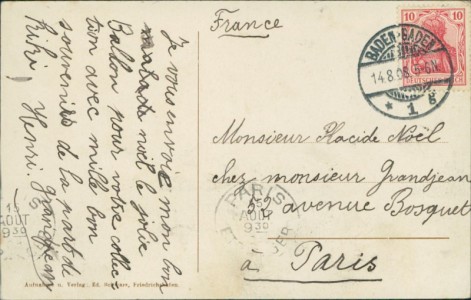 France
Je vous envoie mon bon
malade noël le jolie
Ballon pour votre collec
tion avec mille bon
souvenirs de la part de
Kiki! Henri Grandjean
Monsieur Placide Noël
chez monsieur Grandjean
52 avenue Bosquet
à Paris
10 10
BADEN-BADEN
14.8.08.5-6N.
* 1 g
PARIS
15
AOUT
9 30
15
AOUT
9 30
Aufnahme u. Verlag: Ed. Friedrichshafen.